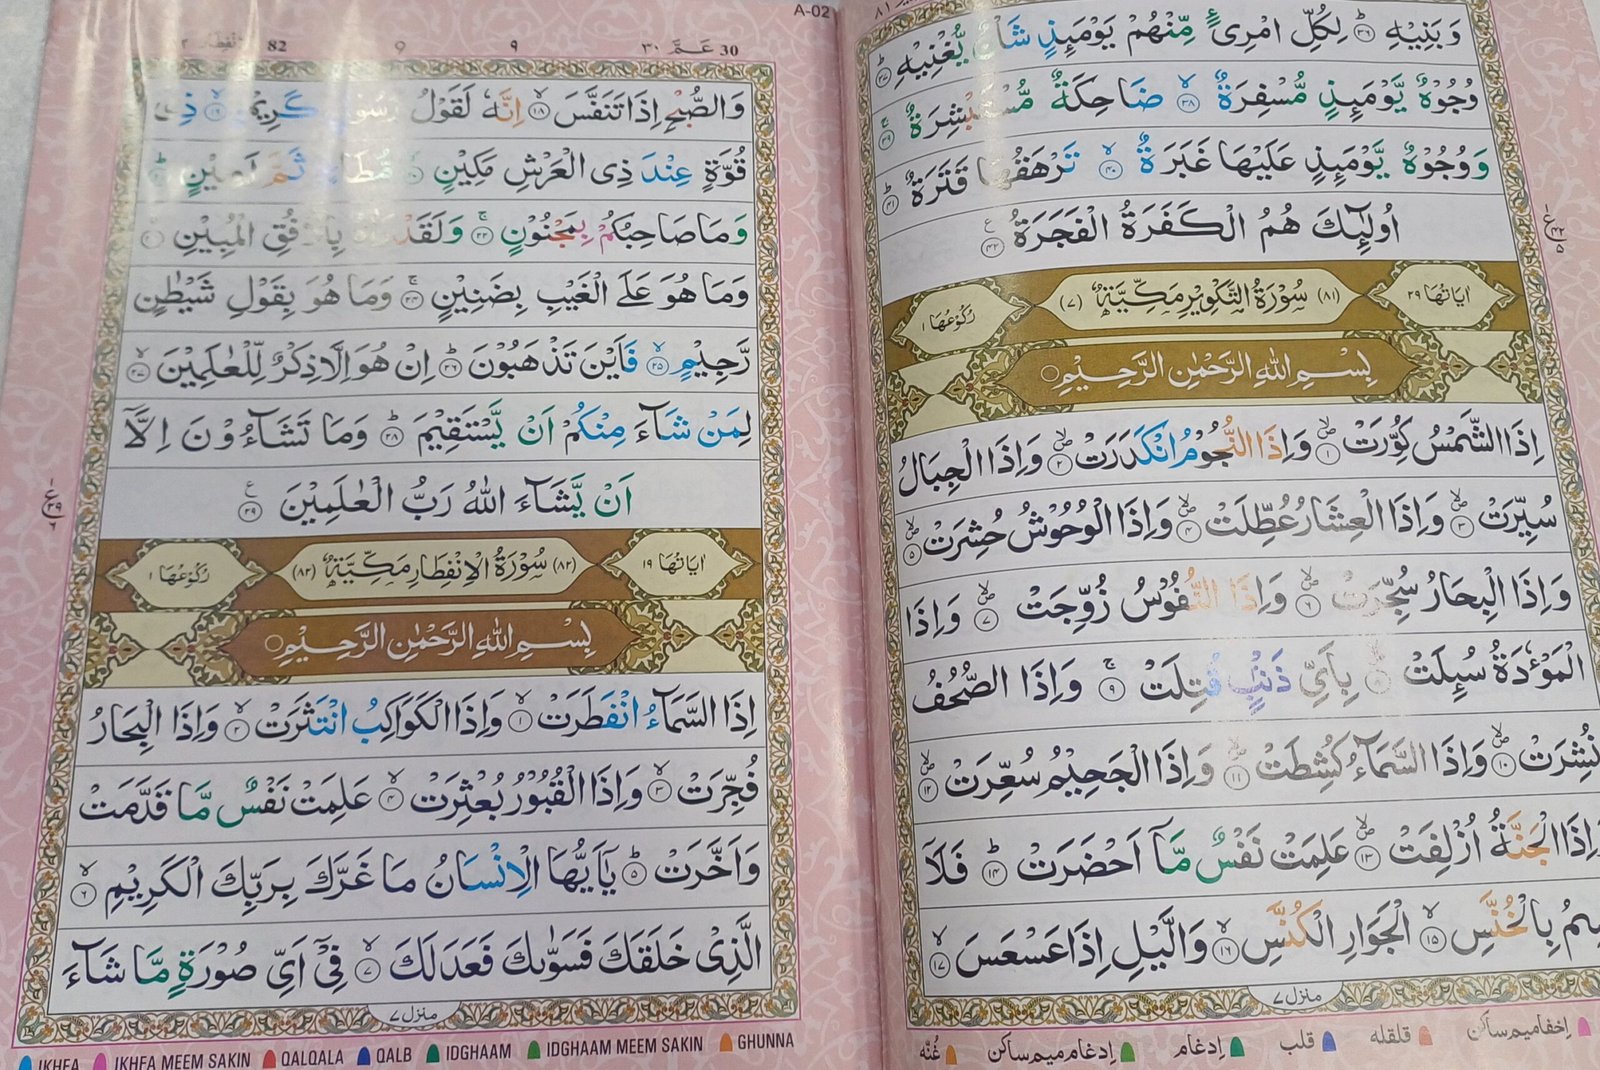 ٨١
وَبَنِيْهِ ؕ﴿۳۶﴾ لِكُلِّ امْرِیٴٍ مِّنْهُمْ يَوْمَىِٕذٍ شَاْنٌ يُّغْنِيْهِ ؕ﴿۳۷﴾
وُجُوْهٌ يَّوْمَىِٕذٍ مُّسْفِرَةٌ ۙ﴿۳۸﴾ ضَاحِكَةٌ مُّسْتَبْشِرَةٌ ۚ﴿۳۹﴾
وَوُجُوْهٌ يَّوْمَىِٕذٍ عَلَيْهَا غَبَرَةٌ ۙ﴿۴۰﴾ تَرْهَقُهَا قَتَرَةٌ ؕ﴿۴۱﴾
اُولٰٓىِٕكَ هُمُ الْكَفَرَةُ الْفَجَرَةُ ﴿۴۲﴾ ع
ع ۴۲ ۵
اٰيَاتُهَا ۲۹ (۸۱) سُوْرَةُ التَّكْوِيْرِ مَكِّيَّةٌ (۷) رُكُوْعُهَا ۱
بِسْمِ اللّٰهِ الرَّحْمٰنِ الرَّحِيْمِ
اِذَا الشَّمْسُ كُوِّرَتْ ۙ﴿۱﴾ وَاِذَا النُّجُوْمُ انْكَدَرَتْ ۙ﴿۲﴾ وَاِذَا الْجِبَالُ
سُيِّرَتْ ۙ﴿۳﴾ وَاِذَا الْعِشَارُ عُطِّلَتْ ۙ﴿۴﴾ وَاِذَا الْوُحُوْشُ حُشِرَتْ ۙ﴿۵﴾
وَاِذَا الْبِحَارُ سُجِّرَتْ ۙ﴿۶﴾ وَاِذَا النُّفُوْسُ زُوِّجَتْ ۙ﴿۷﴾ وَاِذَا
الْمَوْءٗدَةُ سُىِٕلَتْ ۙ﴿۸﴾ بِاَیِّ ذَنْۢبٍ قُتِلَتْ ۚ﴿۹﴾ وَاِذَا الصُّحُفُ
نُشِرَتْ ۙ﴿۱۰﴾ وَاِذَا السَّمَآءُ كُشِطَتْ ۙ﴿۱۱﴾ وَاِذَا الْجَحِيْمُ سُعِّرَتْ ۙ﴿۱۲﴾
وَاِذَا الْجَنَّةُ اُزْلِفَتْ ۙ﴿۱۳﴾ عَلِمَتْ نَفْسٌ مَّآ اَحْضَرَتْ ؕ﴿۱۴﴾ فَلَآ
بِالْخُنَّسِ ۙ﴿۱۵﴾ الْجَوَارِ الْكُنَّسِ ۙ﴿۱۶﴾ وَالَّيْلِ اِذَا عَسْعَسَ ۙ﴿۱۷﴾
منزل ۷
اِخفامیم ساکن قلقله قلب اِدغام اِدغام میم ساکن غُنّه
A-02
30 عَمَّ ۳۰ ۹ 82
وَالصُّبْحِ اِذَا تَنَفَّسَ ۙ﴿۱۸﴾ اِنَّهٗ لَقَوْلُ رَسُوْلٍ كَرِيْمٍ ۙ﴿۱۹﴾ ذِیْ
قُوَّةٍ عِنْدَ ذِی الْعَرْشِ مَكِيْنٍ ۙ﴿۲۰﴾ مُّطَاعٍ ثَمَّ اَمِيْنٍ ؕ﴿۲۱﴾
وَمَا صَاحِبُكُمْ بِمَجْنُوْنٍ ۚ﴿۲۲﴾ وَلَقَدْ رَاٰهُ بِالْاُفُقِ الْمُبِيْنِ ۚ﴿۲۳﴾
وَمَا هُوَ عَلَی الْغَيْبِ بِضَنِيْنٍ ۚ﴿۲۴﴾ وَمَا هُوَ بِقَوْلِ شَيْطٰنٍ
رَّجِيْمٍ ۙ﴿۲۵﴾ فَاَيْنَ تَذْهَبُوْنَ ؕ﴿۲۶﴾ اِنْ هُوَ اِلَّا ذِكْرٌ لِّلْعٰلَمِيْنَ ۙ﴿۲۷﴾
لِمَنْ شَآءَ مِنْكُمْ اَنْ يَّسْتَقِيْمَ ؕ﴿۲۸﴾ وَمَا تَشَآءُوْنَ اِلَّآ
اَنْ يَّشَآءَ اللّٰهُ رَبُّ الْعٰلَمِيْنَ ﴿۲۹﴾ ع
ع ۲۹ ۶
اٰيَاتُهَا ۱۹ (۸۲) سُوْرَةُ الْاِنْفِطَارِ مَكِّيَّةٌ (۸۲) رُكُوْعُهَا ۱
بِسْمِ اللّٰهِ الرَّحْمٰنِ الرَّحِيْمِ
اِذَا السَّمَآءُ انْفَطَرَتْ ۙ﴿۱﴾ وَاِذَا الْكَوَاكِبُ انْتَثَرَتْ ۙ﴿۲﴾ وَاِذَا الْبِحَارُ
فُجِّرَتْ ۙ﴿۳﴾ وَاِذَا الْقُبُوْرُ بُعْثِرَتْ ۙ﴿۴﴾ عَلِمَتْ نَفْسٌ مَّا قَدَّمَتْ
وَاَخَّرَتْ ؕ﴿۵﴾ يٰٓاَيُّهَا الْاِنْسَانُ مَا غَرَّكَ بِرَبِّكَ الْكَرِيْمِ ۙ﴿۶﴾
الَّذِیْ خَلَقَكَ فَسَوّٰىكَ فَعَدَلَكَ ۙ﴿۷﴾ فِیْٓ اَیِّ صُوْرَةٍ مَّا شَآءَ
منزل ۷
IKHFA IKHFA MEEM SAKIN QALQALA QALB IDGHAAM IDGHAAM MEEM SAKIN GHUNNA